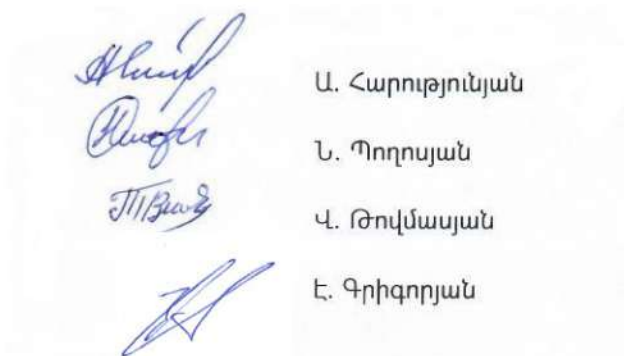 Ա. Հարությունյան
Ն. Պողոսյան
Վ. Թովմասյան
Է. Գրիգորյան